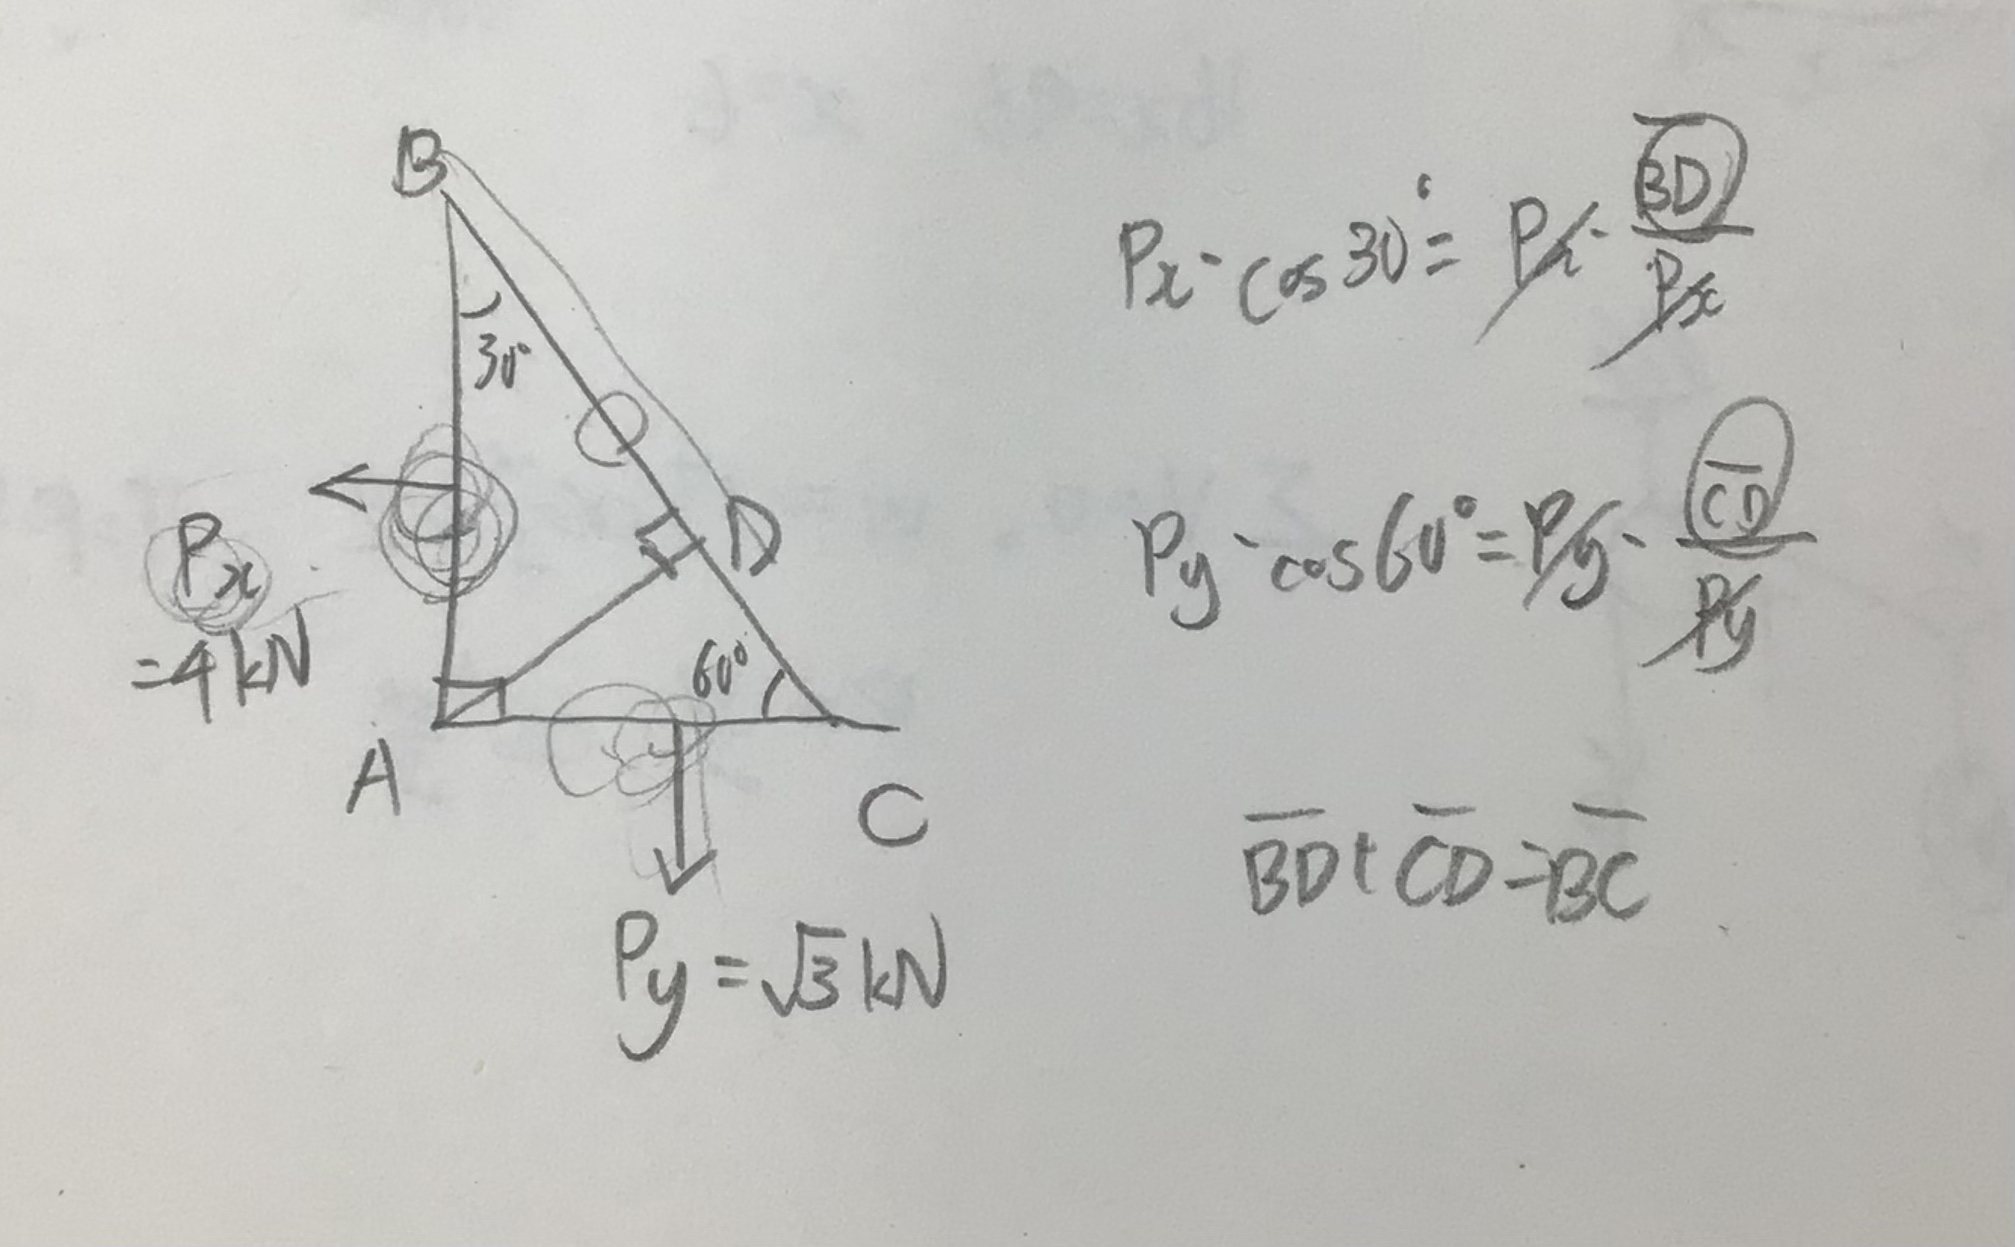 B
30°
D
Px
=4kN
60°
A
C
Py=√3kN
Px·cos30°=Px·BD/Px
Py·cos60°=Py·CD/Py
BD+CD=BC